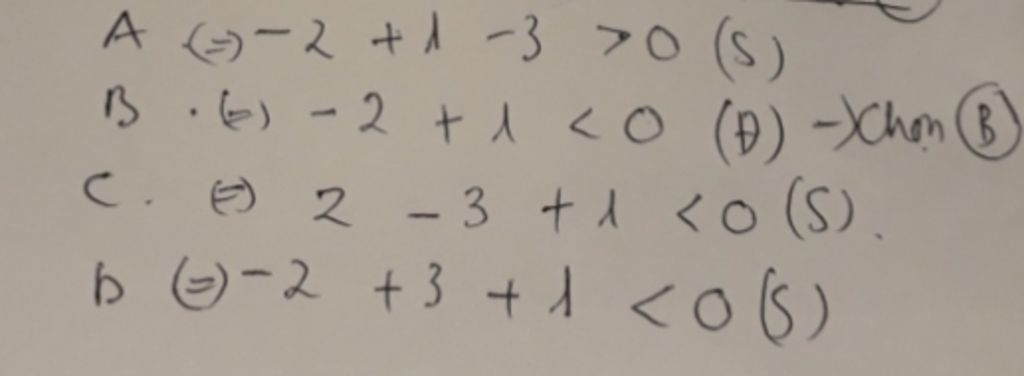 A (=) -2 + 1 - 3 > 0 (S)
B . (=) -2 + 1 < 0 (Đ) → Chọn B
C . (=) 2 - 3 + 1 < 0 (S).
D (=) -2 + 3 + 1 < 0 (S)